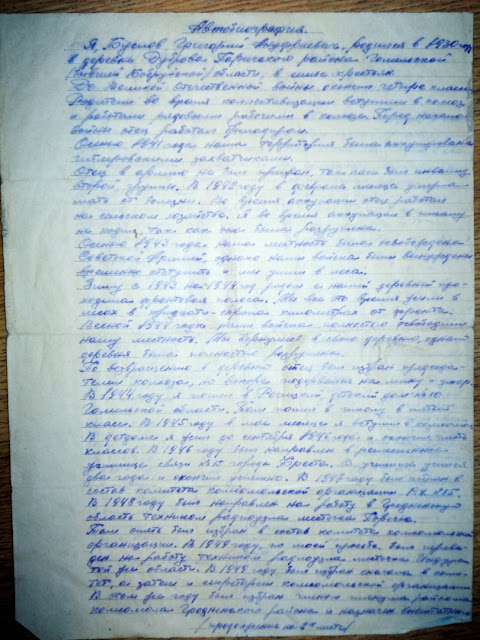 Автобиография
Я, Буслов Григорий Андреевич, родился в 1930 году
в деревне Дуброва Паричского района Гомельской
(бывшей Бобруйской) области, в семье крестьян.
До Великой Отечественной войны окончил четыре класса.
Родители во время коллективизации вступили в колхоз
и работали рядовыми рабочими в колхозе. Перед началом
войны отец работал бригадиром.
Осенью 1941 года наша территория была оккупирована
гитлеровскими захватчиками.
Отец в армию не был призван, так как был инвалид
второй группы. В 1942 году в феврале месяце умерла
мать от болезни. Во время оккупации отец работал
на сельском хозяйстве. Я во время оккупации в школу
не ходил, так как она была разрушена.
Осенью 1943 года наша местность была освобождена
Советской Армией, однако наши войска были вынуждены
временно отступить и мы ушли в леса.
Зиму с 1943 на 1944 год рядом с нашей деревней про-
ходила фронтовая полоса. Мы все это время жили в
лесах в тридцати-сорока километрах от фронта.
Весной 1944 года наши войска полностью освободили
нашу местность. Мы вернулись в свою деревню, однако
деревня была полностью разрушена.
По возвращению в деревню отец был избран председа-
телем колхоза, но вскоре подорвался на мине и умер.
В 1944 году я пошел в детский дом №10
Гомельской области. Там пошел в школу в пятый
класс. В 1945 году в мае месяце я вступил в комсомол.
В детдоме я жил до сентября 1946 года и окончил шесть
классов. В 1946 году был направлен в ремесленное
училище связи №15 города Бреста. В училище учился
два года и окончил успешно. В 1947 году был избран в
состав комитета комсомольской организации Р.У. №15.
В 1948 году был направлен на работу в Гродненскую
область техником радиоузла местечка
Там опять был избран в состав комитета комсомольской
организации. В 1949 году, по моей просьбе, был переве-
ден на работу техником радиоузла местечка Индура
той же области. В 1949 году был избран сначала в коми-
тет, а затем и секретарем комсомольской организации.
В этом же году был избран членом пленума райкома
комсомола Гродненского района и назначен внештатным
(продолжение на 2м листе)